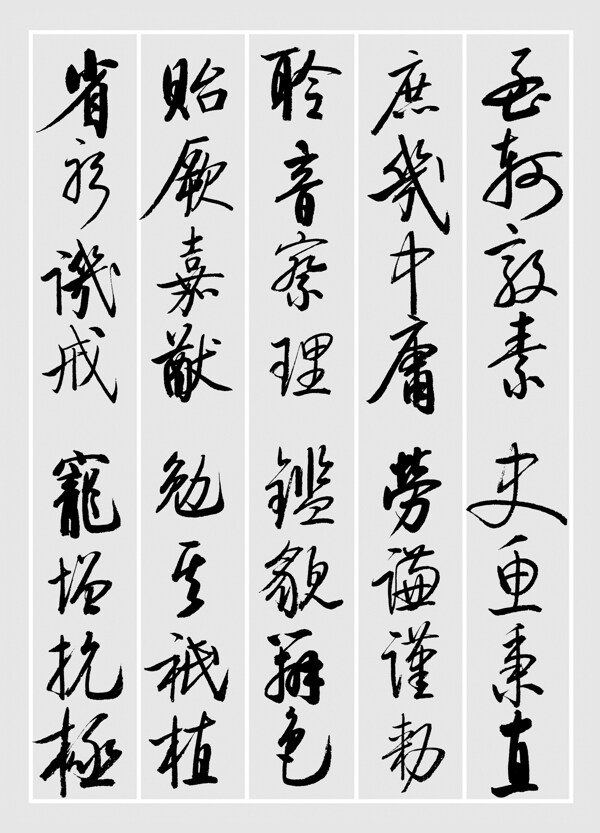 孟軻敦素 史魚秉直
庶幾中庸 勞謙謹勅
聆音察理 鑑貌辨色
貽厥嘉猷 勉其祗植
省躬譏戒 寵增抗極